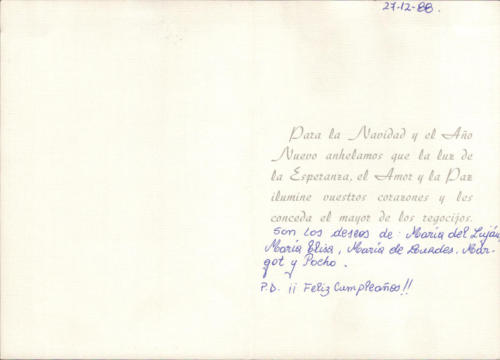 27-12-88.
Para la Navidad y el Año
Nuevo anhelamos que la luz de
la Esperanza, el Amor y la Paz
ilumine vuestros corazones y les
conceda el mayor de los regocijos.
Son los deseos de: María del Luján,
María Elisa, María de Lourdes, Már-
got y Pocho.
P.D. ¡¡ Feliz Cumpleaños!!